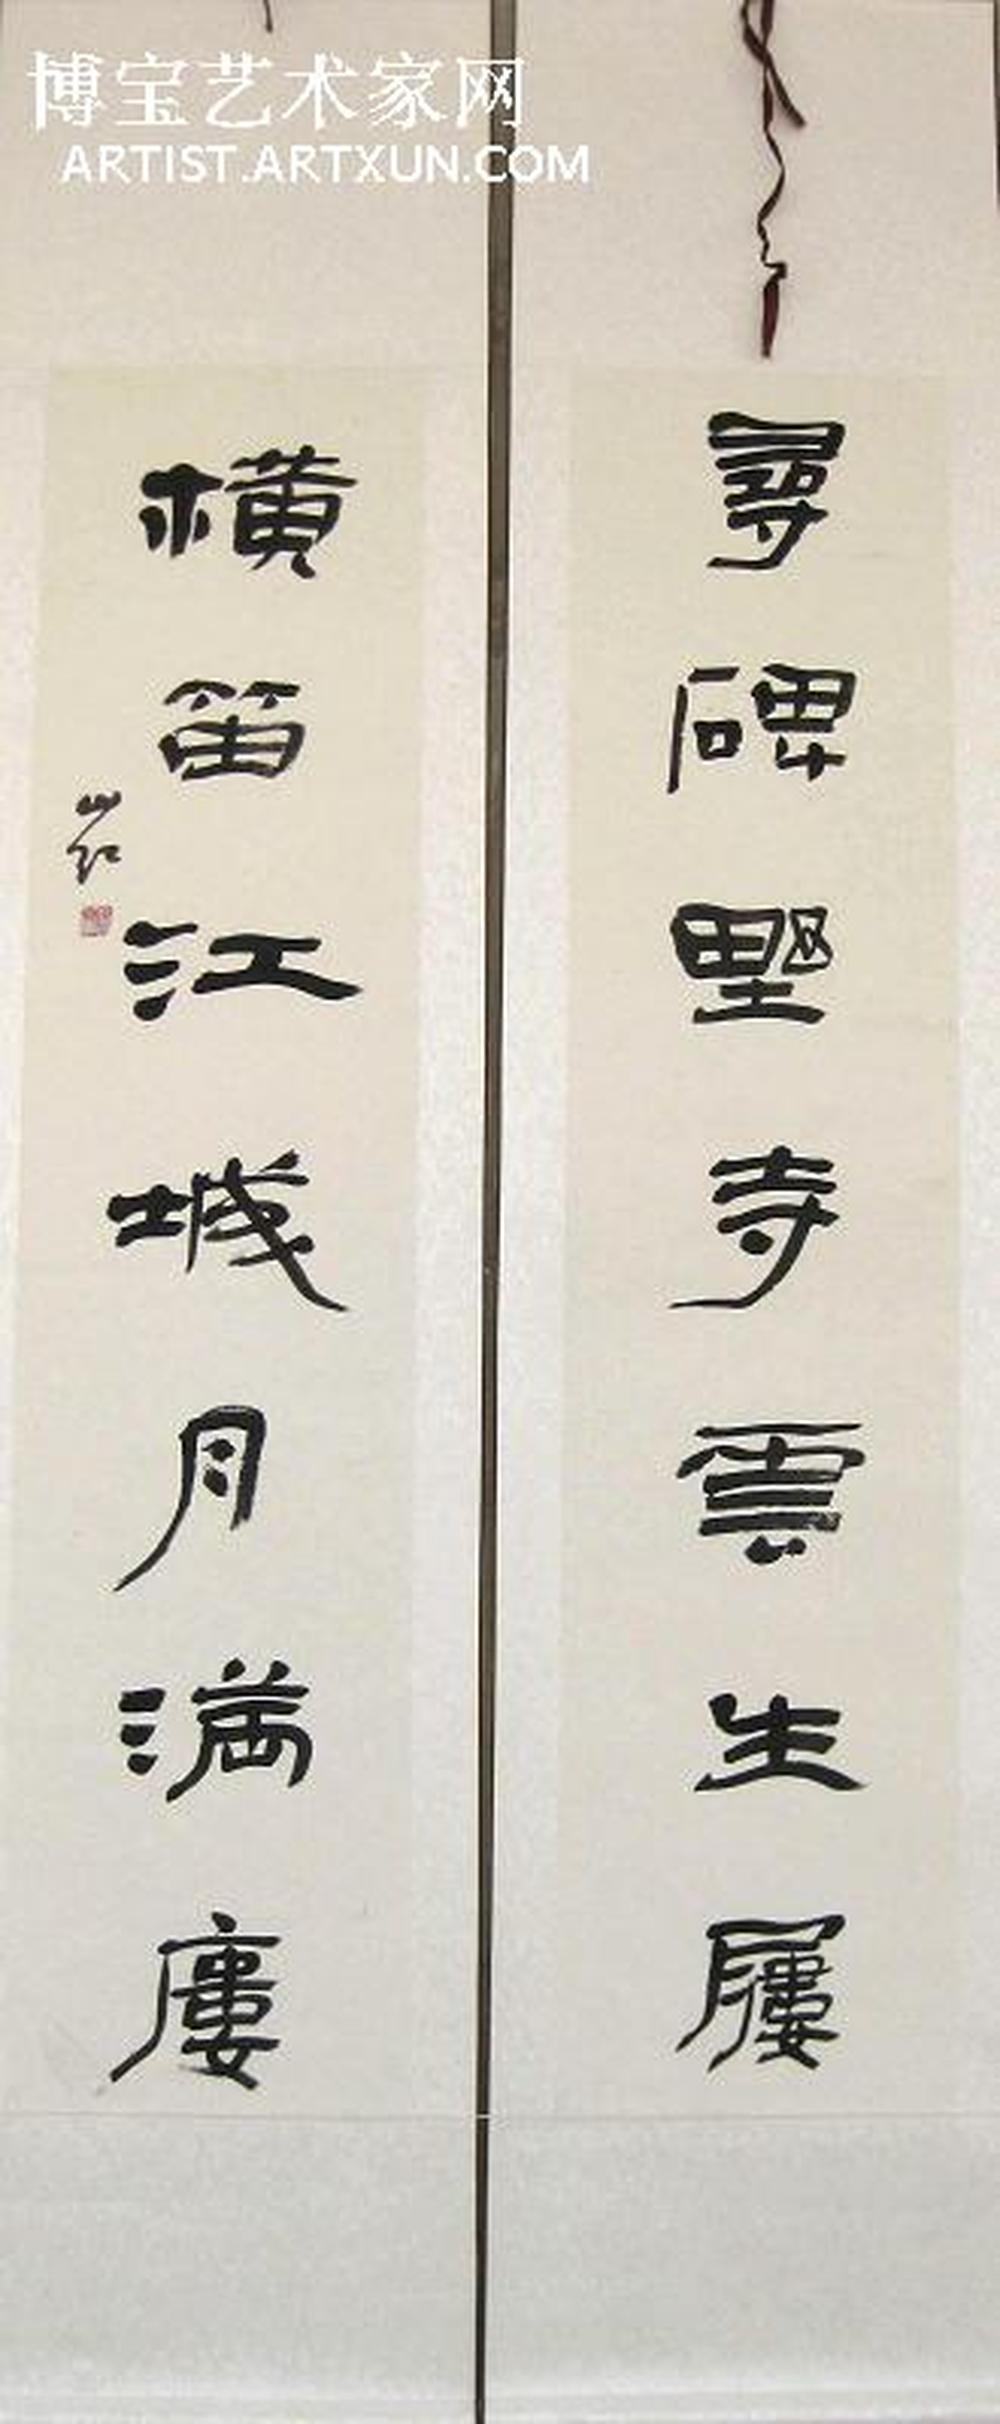 博宝艺术家网
ARTIST.ARTXUN.COM
尋碑野寺雲生屨
橫笛江城月满廔